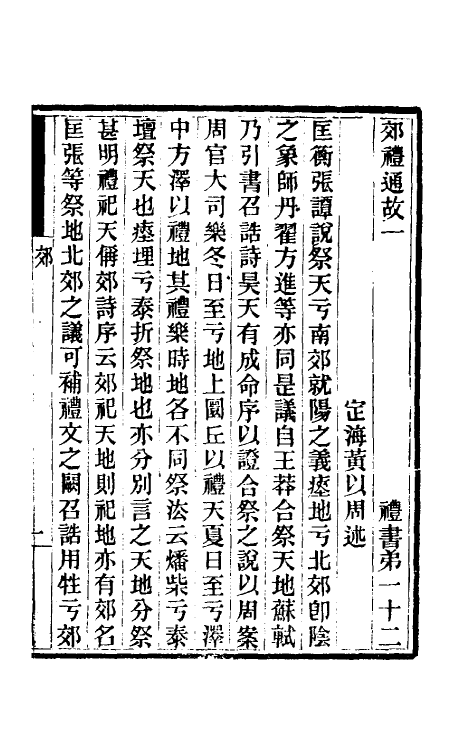 郊禮通故一　禮書弟一十二
定海黃以周述
匡衡張譚說祭天亏南郊就陽之義瘞地亏北郊卽陰
之象師丹翟方進等亦同是議自王莽合祭天地蘇軾
乃引書召誥詩昊天有成命序以證合祭之說以周案
周官大司樂冬日至亏地上圜丘以禮天夏日至亏澤
中方澤以禮地其禮樂時地各不同祭法云燔柴亏泰
壇祭天也瘞埋亏泰折祭地也亦分別言之天地分祭
甚明禮祀天偁郊詩序云郊祀天地則祀地亦有郊名
匡張等祭地北郊之議可補禮文之闕召誥用牲亏郊
郊
一